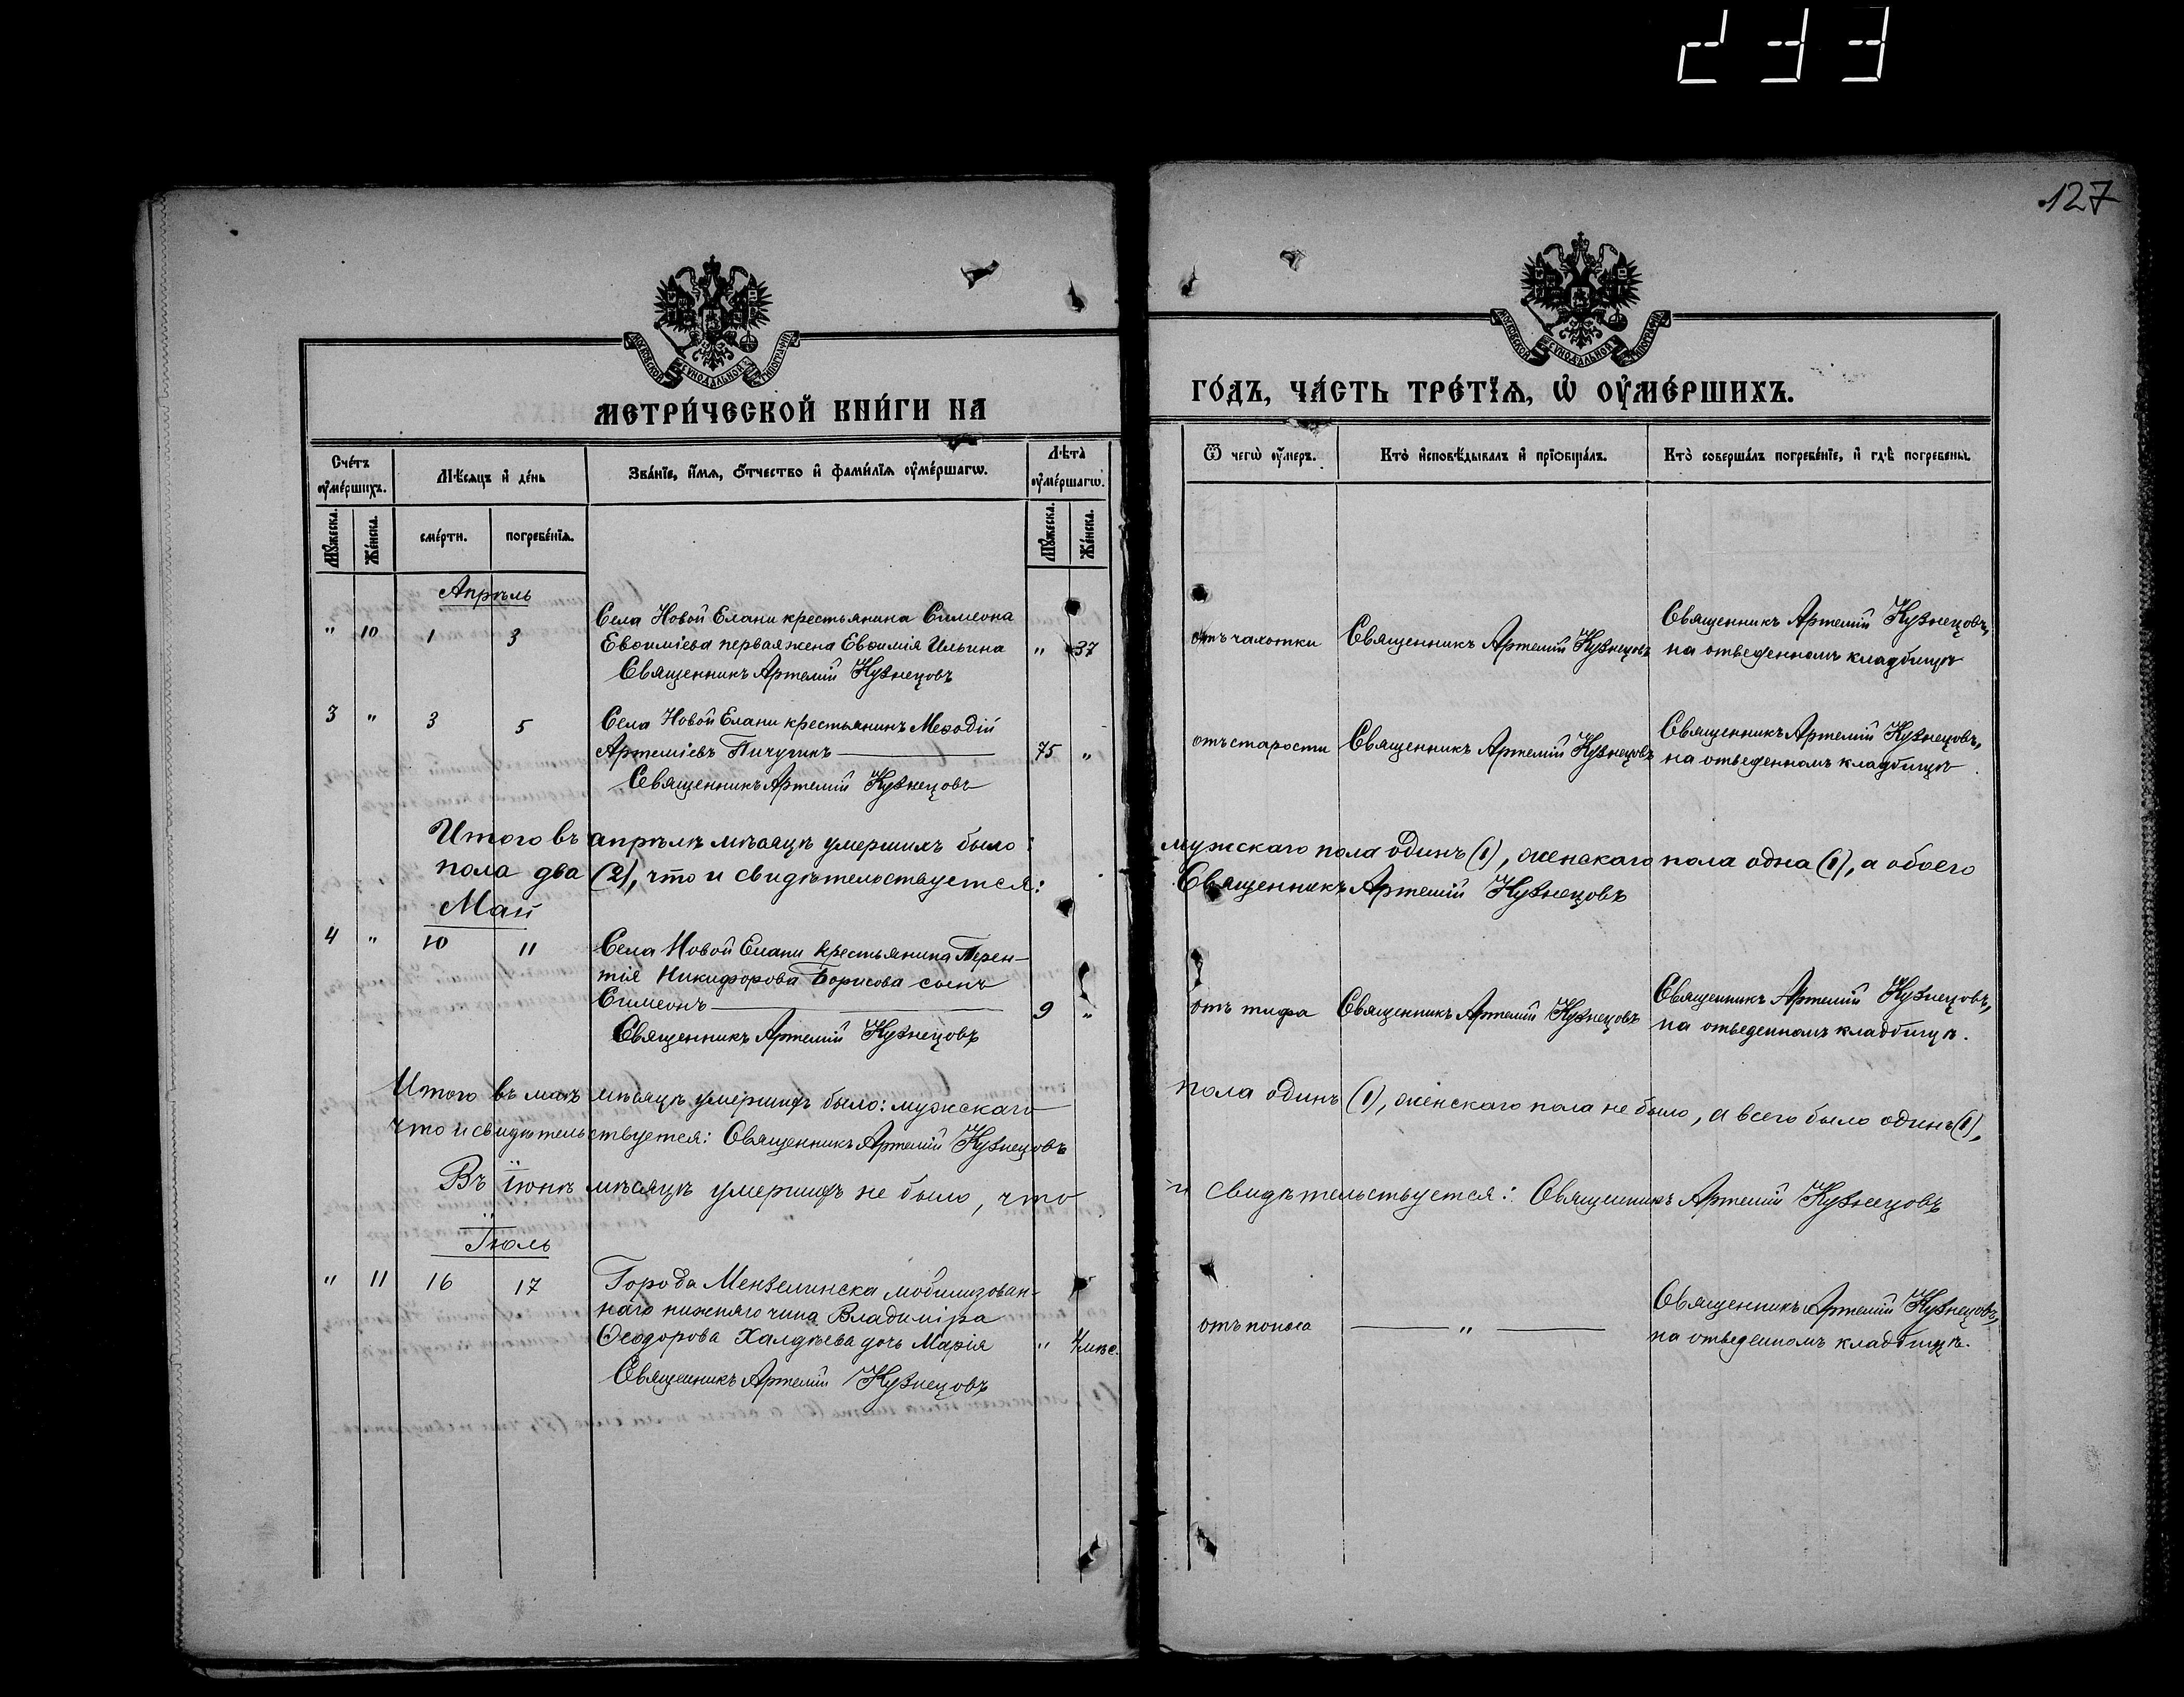 233
127
МОСКОВСКОЙ СѴНОДАЛЬНОЙ ТИПОГРАФІИ
МОСКОВСКОЙ СѴНОДАЛЬНОЙ ТИПОГРАФІИ
МЕТРИ́ЧЕСКОЙ КНИ́ГИ НА
ГО́ДЪ, ЧА́СТЬ ТРЕ́ТЇѦ, Ѡ҆ ОУ҆МЕ́РШИХЪ.
Сче́тъ оу҆ме́ршихъ.
Мѣ́сяцъ и҆ де́нь
Зва́нїе, и҆́мѧ, ѻ҆́тчество и҆ фами́лїѧ оу҆ме́ршагѡ.
Лѣ́та оу҆ме́ршагѡ.
Ѿ чегѡ̀ оу҆́меръ.
Кто̀ и҆сповѣ́дывалъ и҆ прїѡбща́лъ.
Кто̀ соверша́лъ погребе́нїе, и҆ гдѣ̀ погребены̀.
Мꙋ́жеска.
Же́нска.
сме́рти.
погребе́нїѧ.
Мꙋ́жеска.
Же́нска.
Апрѣль
" 10 1 3 Села Новой Елани крестьянина Симеона
Евѳиміева первая жена Евѳимія Ильина " 37
Священникъ Артемій Кузнецовъ
отъ чахотки Священникъ Артемій Кузнецовъ Священникъ Артемій Кузнецовъ,
на отведенномъ кладбищѣ
3 " 3 5 Села Новой Елани крестьянинъ Меѳодій
Артеміевъ Пичугинъ 75 "
Священникъ Артемій Кузнецовъ
отъ старости Священникъ Артемій Кузнецовъ Священникъ Артемій Кузнецовъ,
на отведенномъ кладбищѣ
Итого въ апрѣлѣ мѣсяцѣ умершихъ было: мужскаго пола одинъ (1), женскаго пола одна (1), а обоего
пола два (2), что и свидѣтельствуется: Священникъ Артемій Кузнецовъ
Май
4 " 10 11 Села Новой Елани крестьянина Терен-
тія Никифорова Борисова сынъ
Симеонъ 9 "
Священникъ Артемій Кузнецовъ
отъ тифа Священникъ Артемій Кузнецовъ Священникъ Артемій Кузнецовъ,
на отведенномъ кладбищѣ.
Итого въ маѣ мѣсяцѣ умершихъ было: мужскаго пола одинъ (1), женскаго пола не было, а всего было одинъ (1),
что и свидѣтельствуется: Священникъ Артемій Кузнецовъ
Въ іюнѣ мѣсяцѣ умершихъ не было, что и свидѣтельствуется: Священникъ Артемій Кузнецовъ
Іюль
" 11 16 17 Города Мензелинска мобилизован-
наго нижняго чина Владиміра
Ѳеодорова Халдѣева дочь Марія " 4 мѣс.
Священникъ Артемій Кузнецовъ
отъ поноса " Священникъ Артемій Кузнецовъ,
на отведенномъ кладбищѣ.